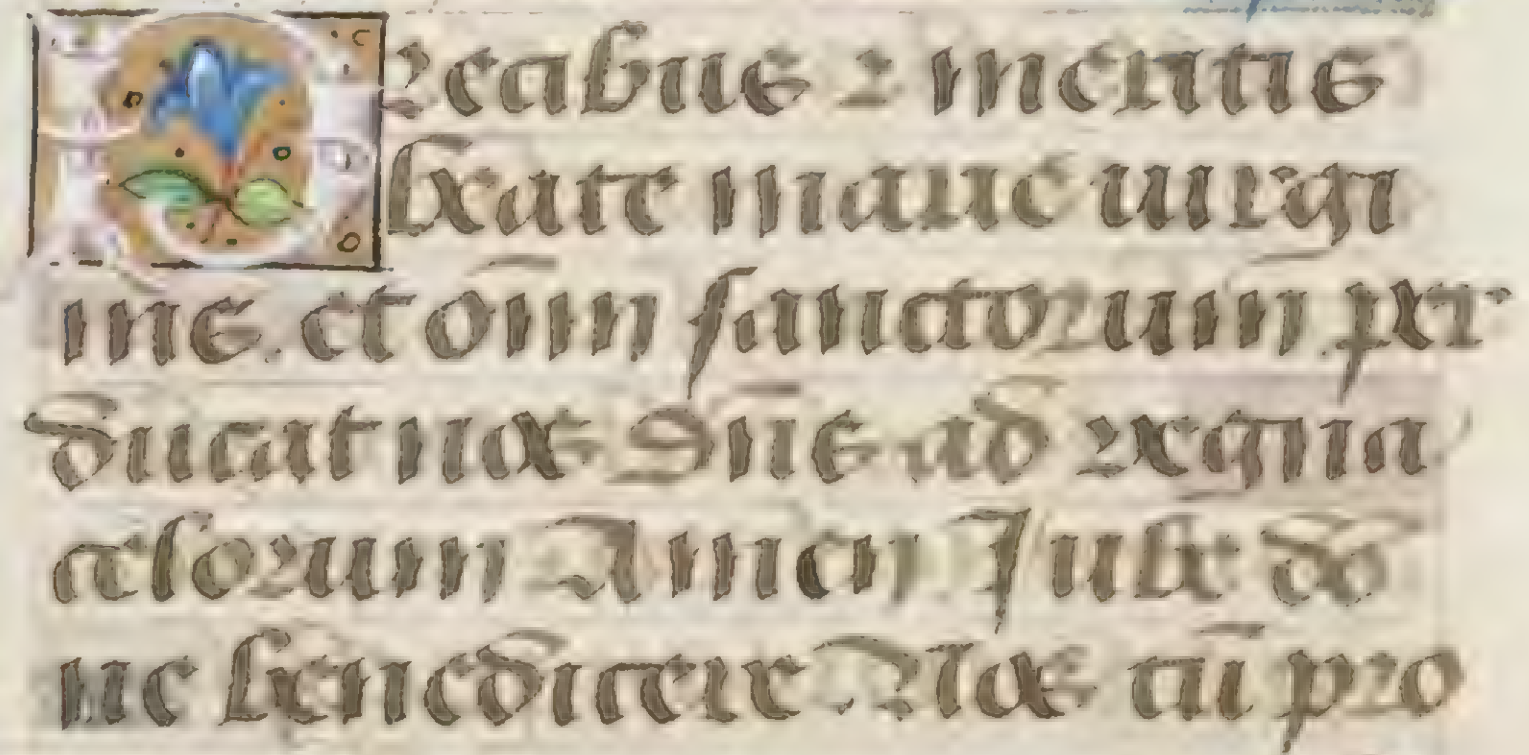 Precibus ⁊ meritis
beate marie uirgi
nis. et om̄n sanctorum per
ducat nos Dn̄s ad regna
celorum Amen Jube do
ne benedicere Nos cū pro